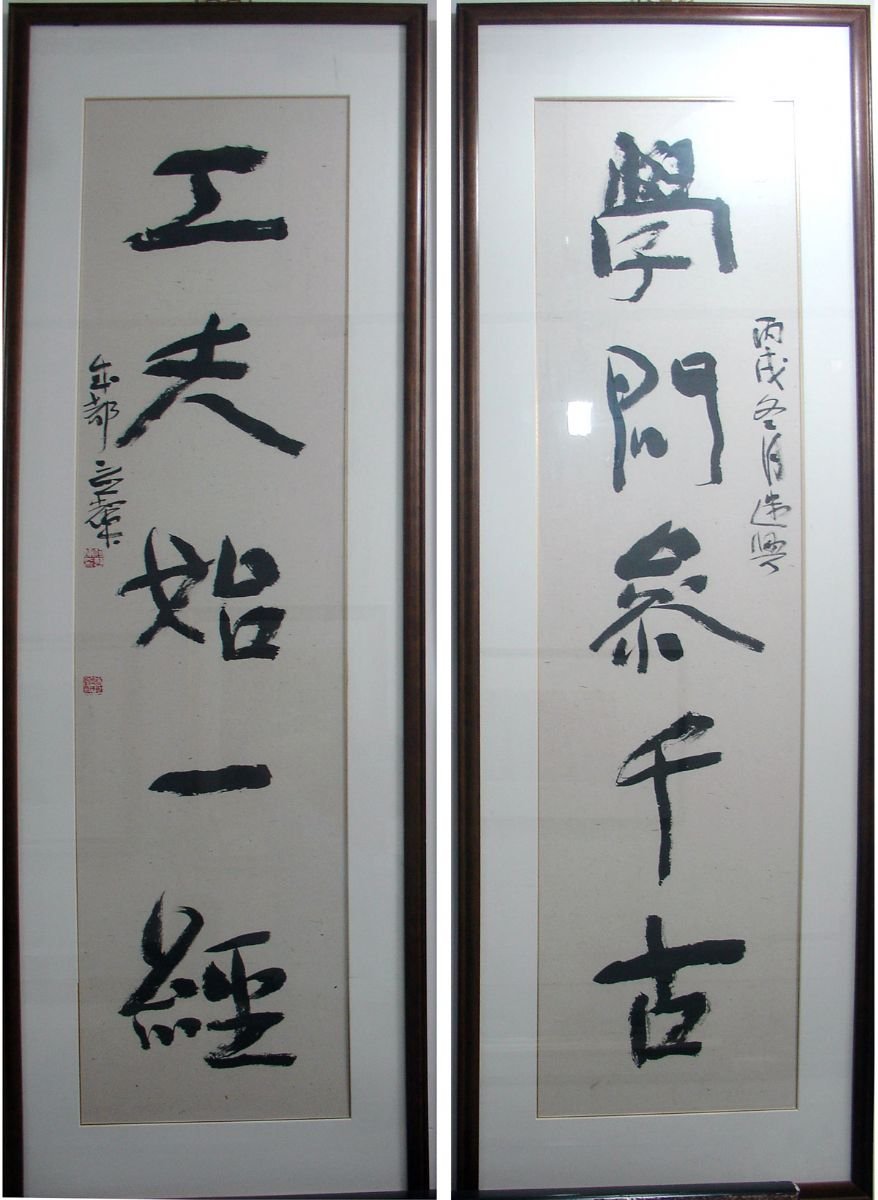 學問參千古
丙戌冬月逸興
工夫始一經
成都